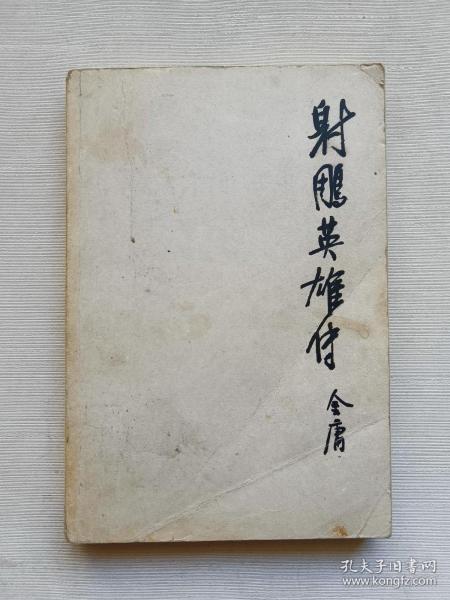 射鵰英雄传
金庸
孔夫子旧书网
www.kongfz.com